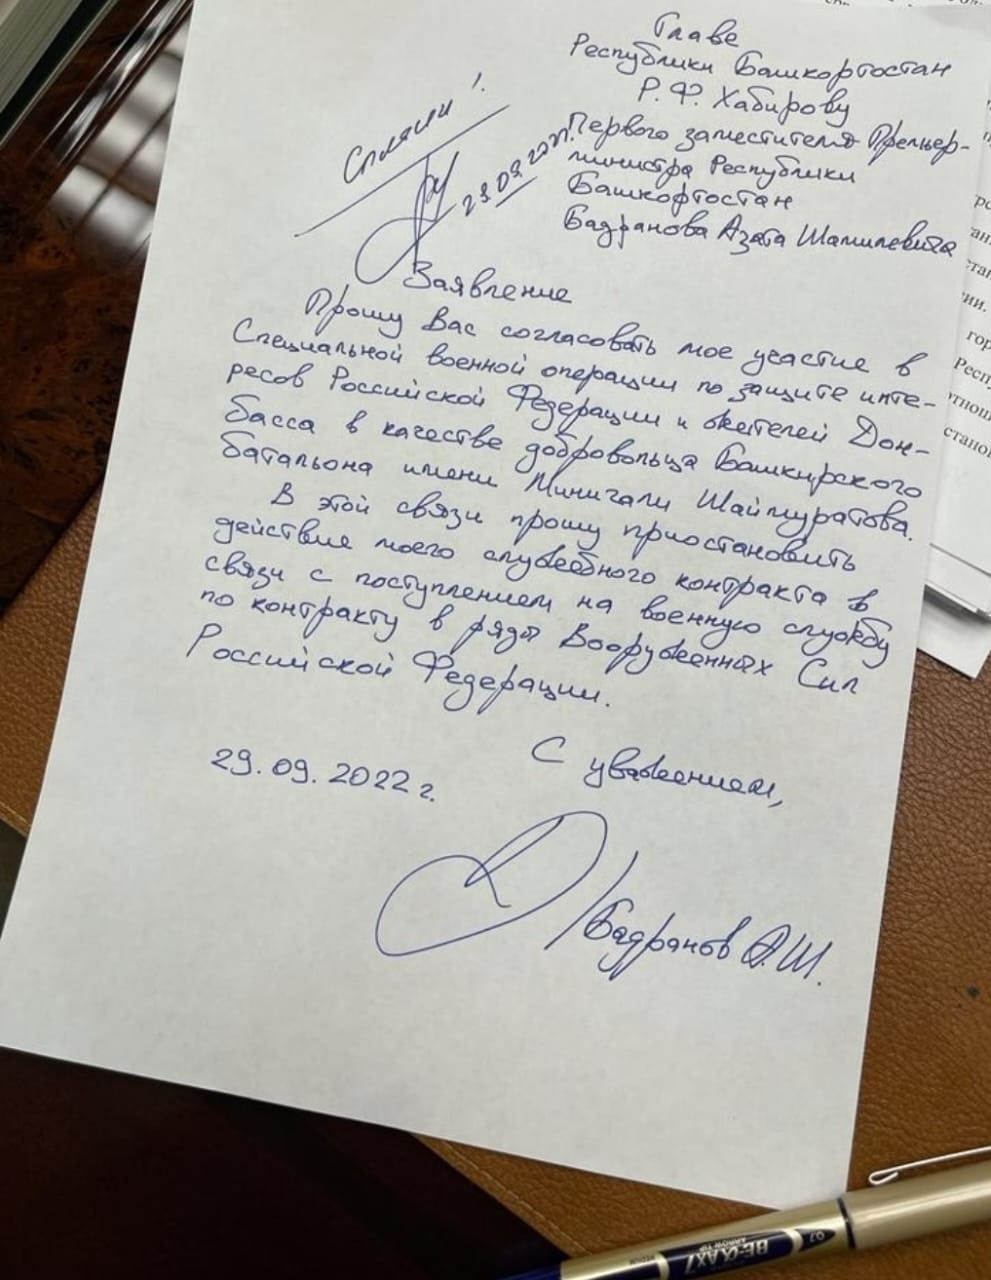 Главе
Республики Башкортостан
Р. Ф. Хабирову
Первого заместителя Премьер-
министра Республики
Башкортостан
Бадранова Азата Шамилевича
29.09.2022
Заявление
Прошу Вас согласовать мое участие в
Специальной военной операции по защите инте-
ресов Российской Федерации и жителей Дон-
басса в качестве добровольца Башкирского
батальона имени Минигали Шаймуратова.
В этой связи прошу приостановить
действие моего служебного контракта в
связи с поступлением на военную службу
по контракту в ряды Вооруженных Сил
Российской Федерации.
С уважением,
29.09.2022 г.
/Бадранов А.Ш.
BE-ΙΧΑΧ7
ARROW TIP
0.7
MEDIUM